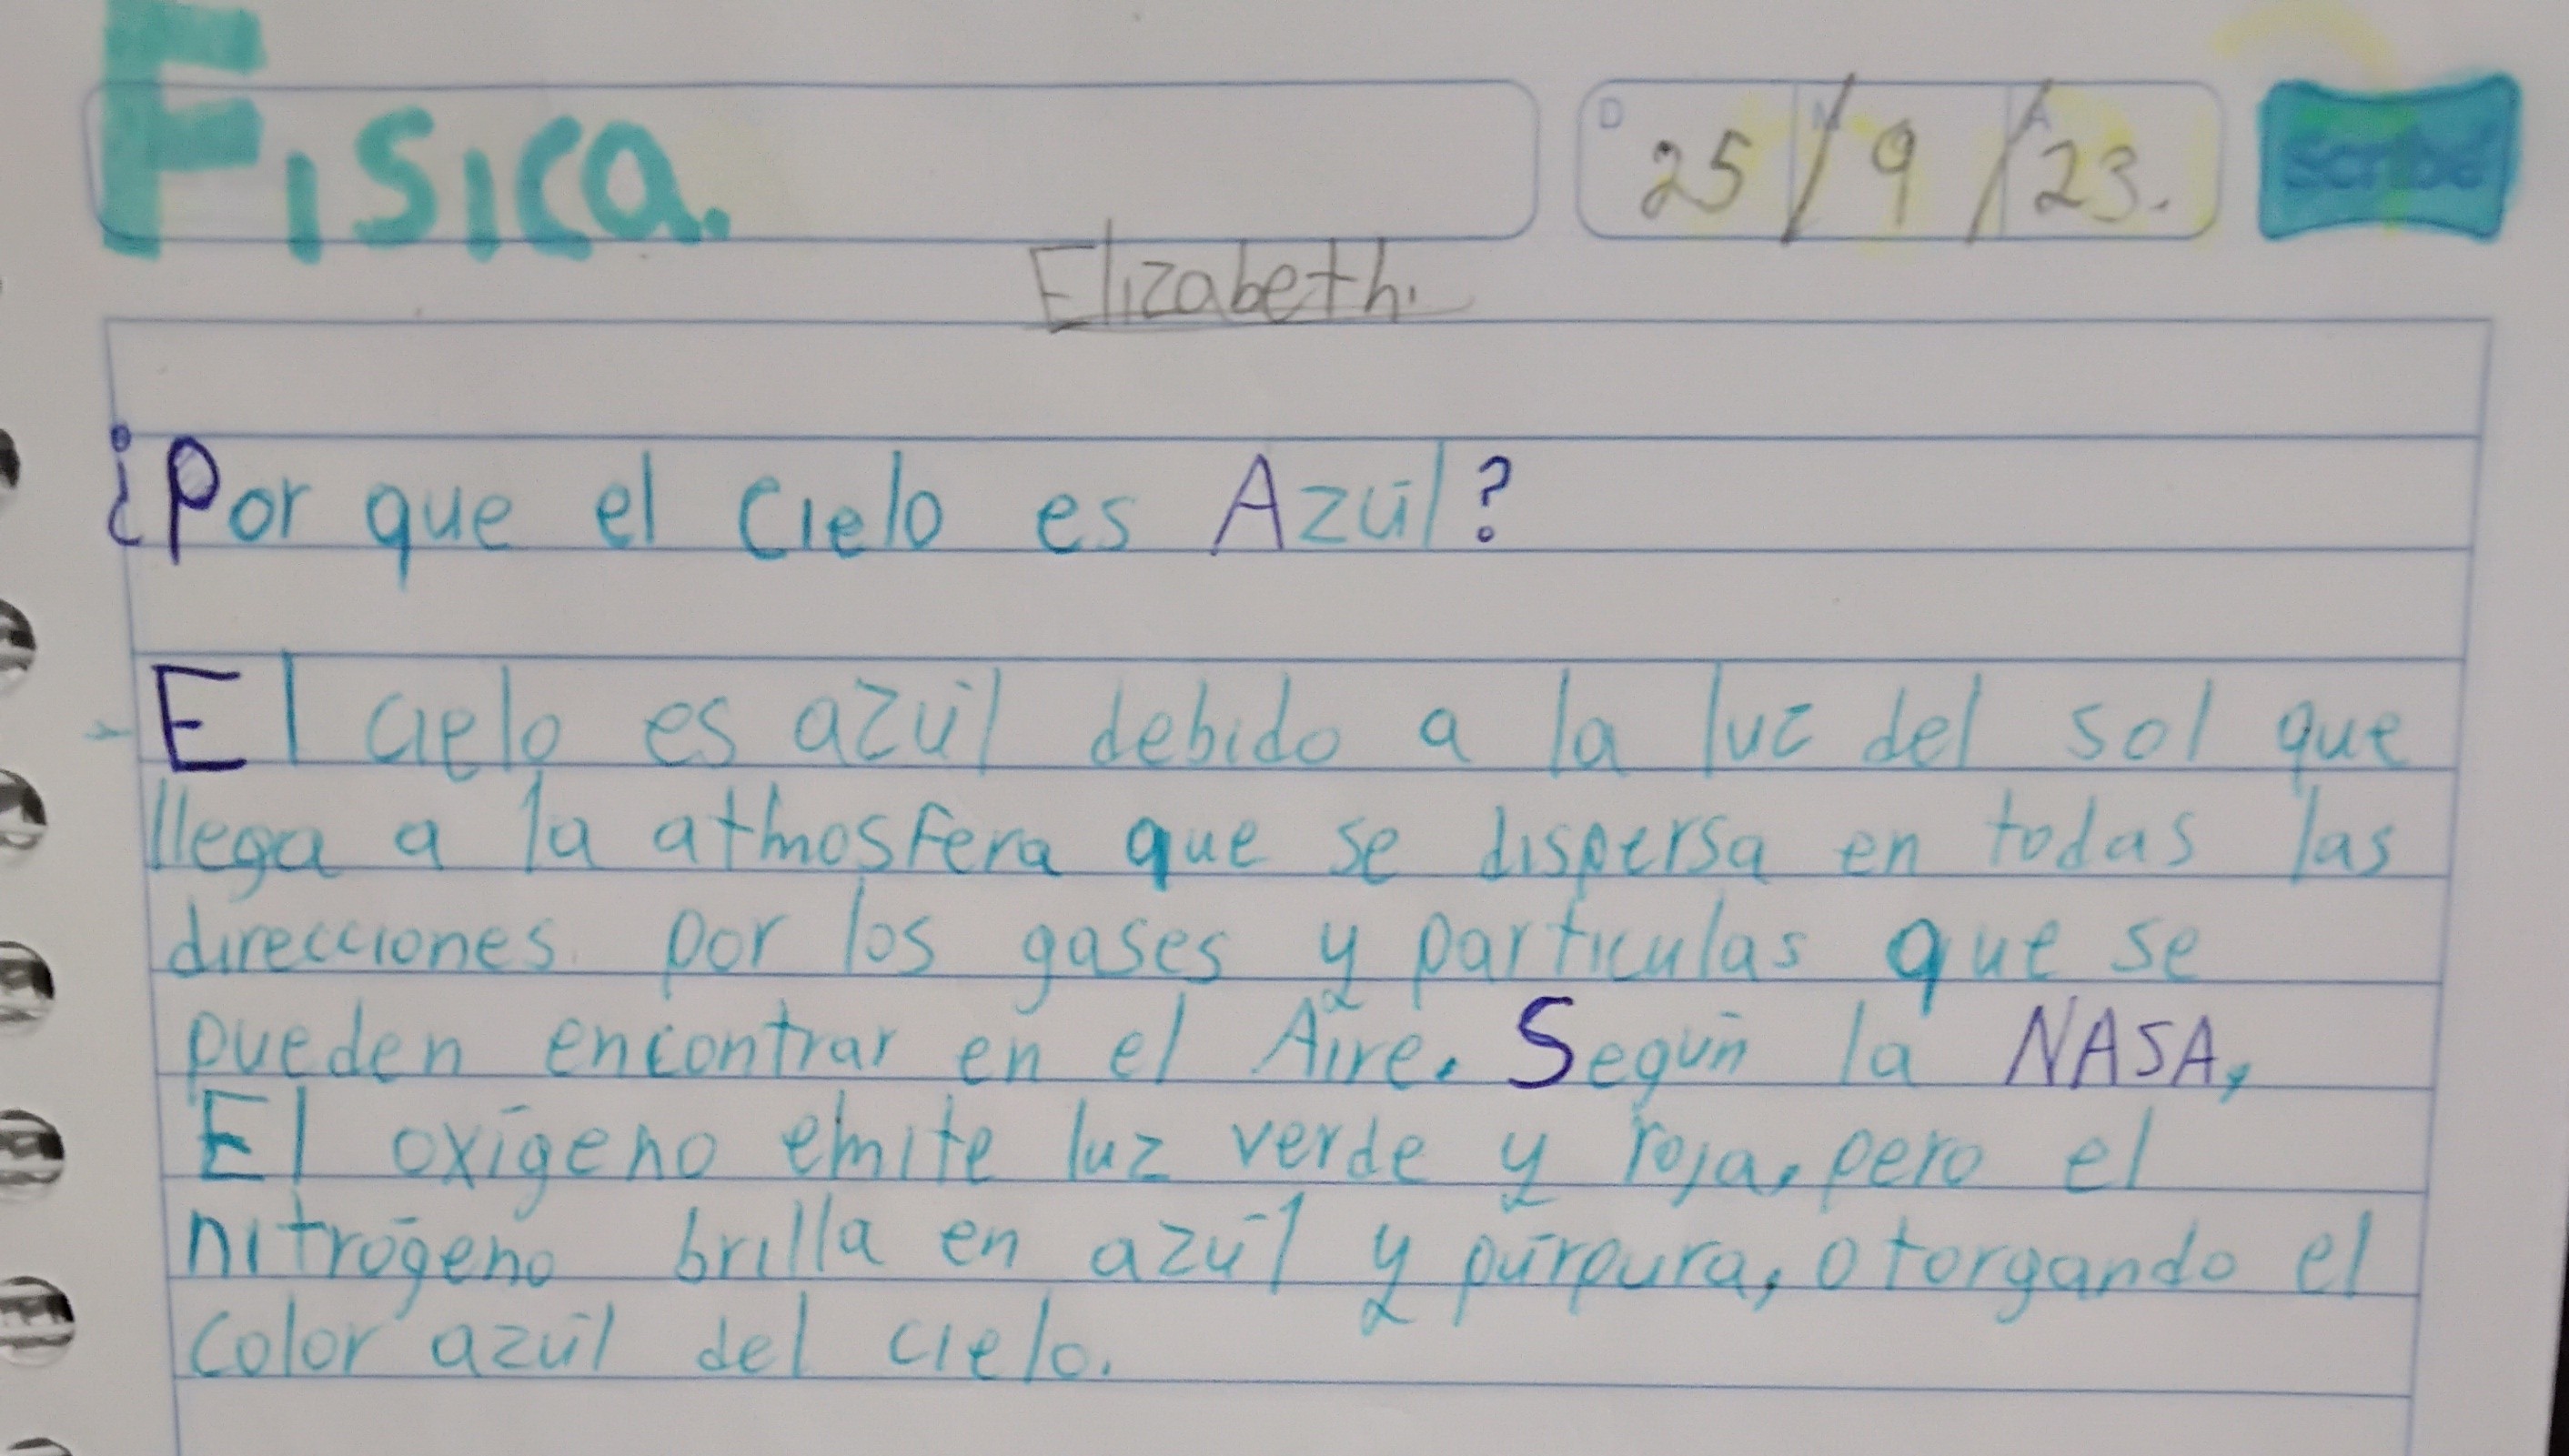 Fisica.
D 25 / M 9 / A 23.
scribe
Elizabeth.
¿Por que el cielo es Azúl?
El cielo es azúl debido a la luz del sol que
llega a la atmosfera que se dispersa en todas las
direcciones por los gases y particulas que se
pueden encontrar en el Aire. Según la NASA,
El oxígeno emite luz verde y roja, pero el
nitrógeno brilla en azúl y púrpura, otorgando el
color azúl del cielo.